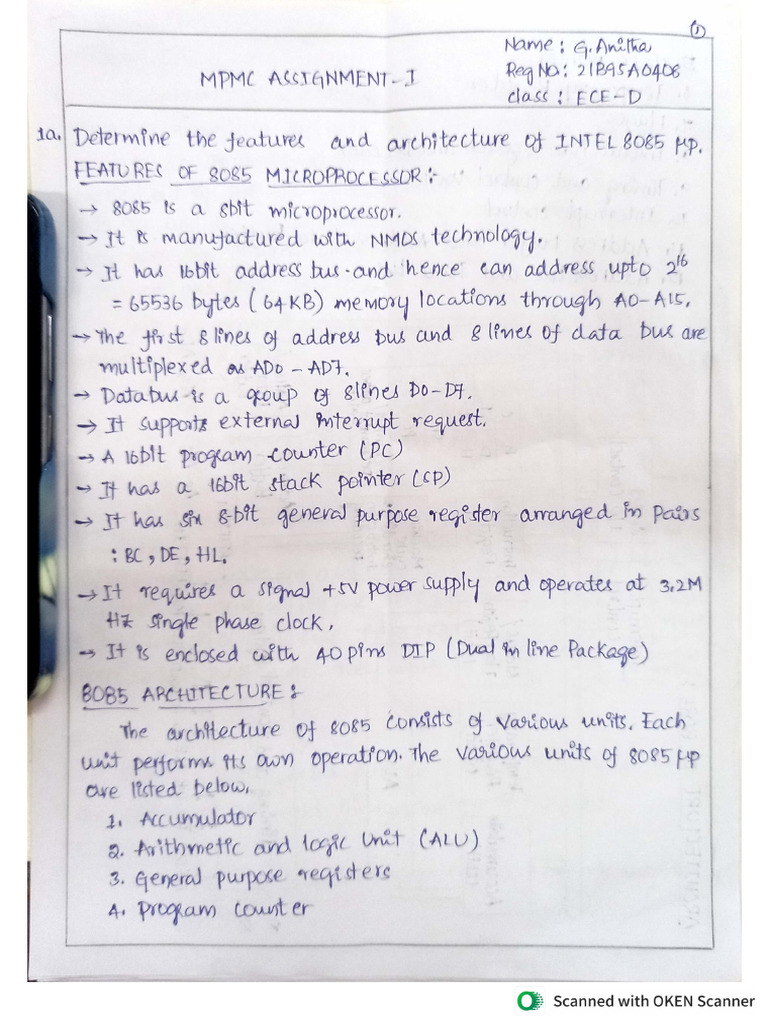 1
Name : G. Anitha
MPMC ASSIGNMENT-I
Reg No : 21B95A0408
class : ECE-D
1a. Determine the features and architecture of INTEL 8085 μP.
FEATURES OF 8085 MICROPROCESSOR :-
→ 8085 is a 8bit microprocessor.
→ It is manufactured with NMOS technology.
→ It has 16bit address bus and hence can address upto 2^16
= 65536 bytes (64KB) memory locations through A0-A15.
→ The first 8 lines of address bus and 8 lines of data bus are
multiplexed as AD0 - AD7.
→ Databus is a group of 8lines D0-D7.
→ It supports external interrupt request.
→ A 16bit program counter (PC)
→ It has a 16bit stack pointer (SP)
→ It has six 8-bit general purpose register arranged in pairs
: BC, DE, HL.
→ It requires a signal +5V power supply and operates at 3.2M
Hz single phase clock.
→ It is enclosed with 40 pins DIP (Dual in line Package)
8085 ARCHITECTURE :
The architecture of 8085 consists of various units. Each
unit performs its own operation. The various units of 8085 μp
are listed below.
1. Accumulator
2. Arithmetic and logic Unit (ALU)
3. General purpose registers
4. Program counter
Scanned with OKEN Scanner